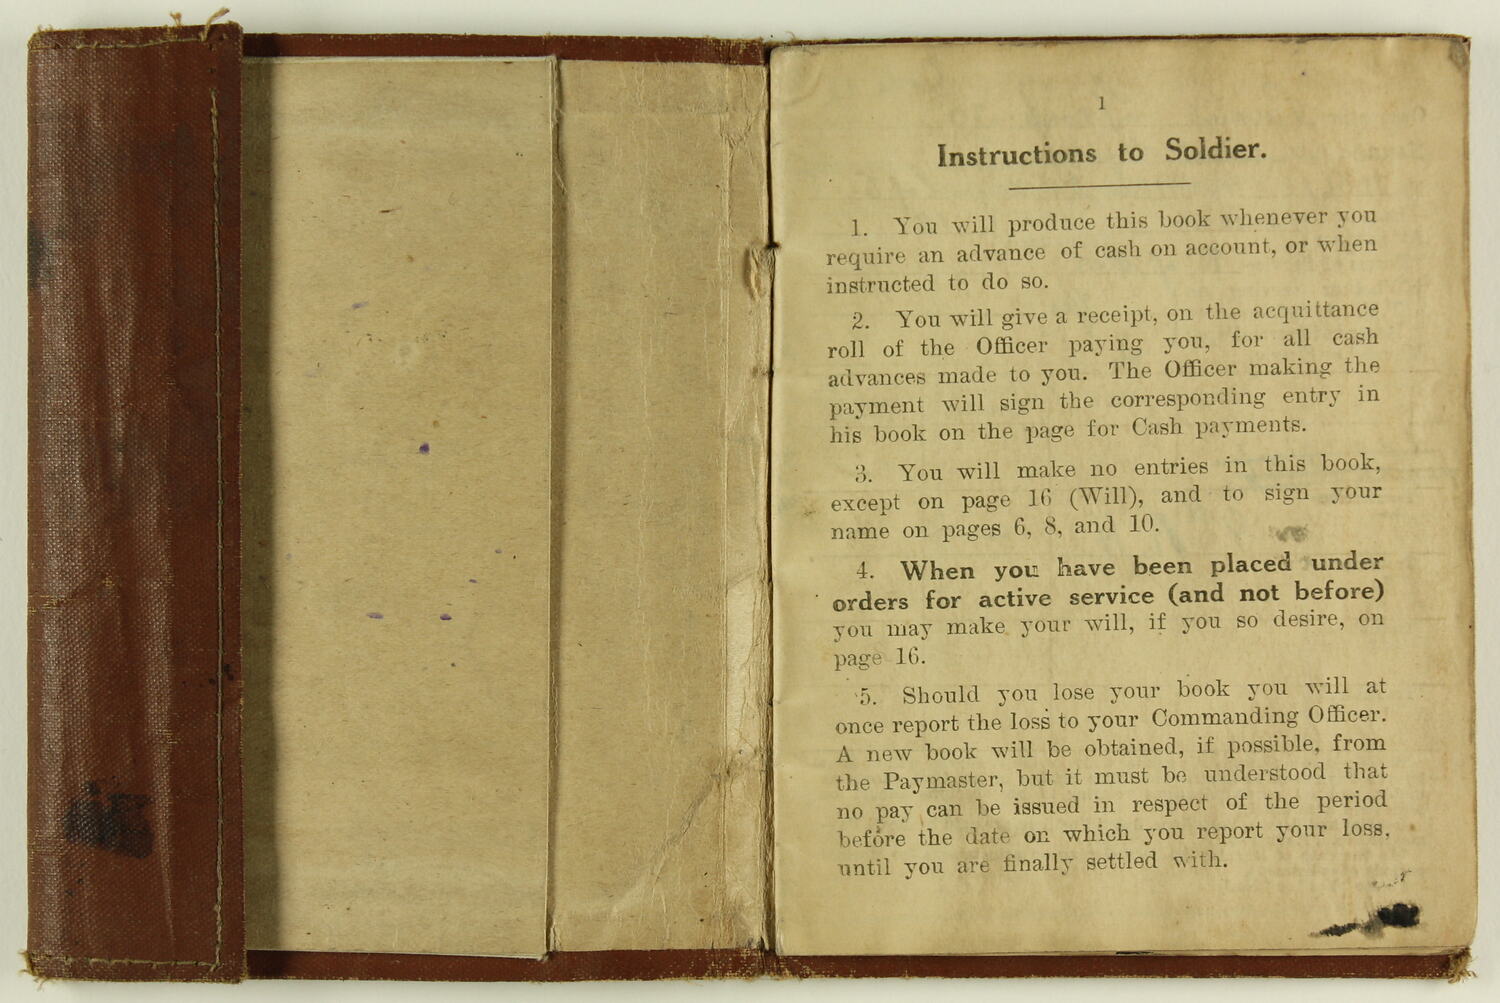 1
Instructions to Soldier.
1. You will produce this book whenever you
require an advance of cash on account, or when
instructed to do so.
2. You will give a receipt, on the acquittance
roll of the Officer paying you, for all cash
advances made to you. The Officer making the
payment will sign the corresponding entry in
his book on the page for Cash payments.
3. You will make no entries in this book,
except on page 16 (Will), and to sign your
name on pages 6, 8, and 10.
4. When you have been placed under
orders for active service (and not before)
you may make your will, if you so desire, on
page 16.
5. Should you lose your book you will at
once report the loss to your Commanding Officer.
A new book will be obtained, if possible, from
the Paymaster, but it must be understood that
no pay can be issued in respect of the period
before the date on which you report your loss,
until you are finally settled with.